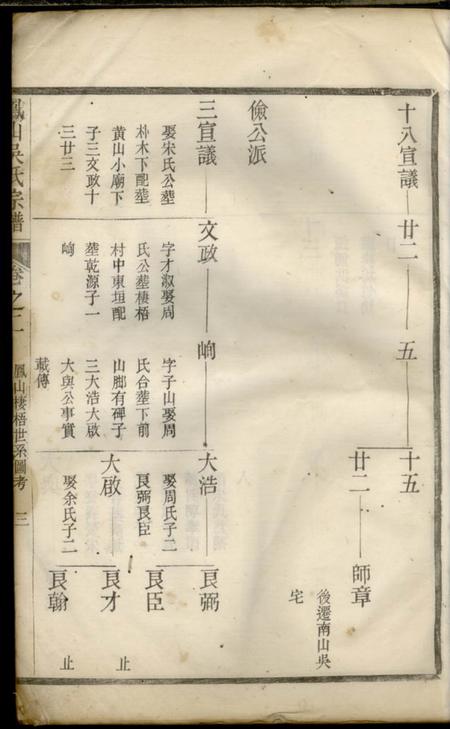 十八宣議
廿二
五
十五
廿二
師章
後遷南山吳
宅
儉公派
三宣議
娶宋氏公塟
朴木下配塟
黄山小廟下
子三文政十
三廿三
文政
字才淑娶周
氏公塟棲梧
村中東垣配
塟乾源子一
峋
峋
字子山娶周
氏合塟下前
山脚有碑子
三大浩大啟
大與公事實
載傳
大浩
娶周氏子二
良弼良臣
良弼
良臣
大啟
娶余氏子二
良才
止
良翰
止
鳳山吳氏宗譜
卷之二
鳳山棲梧世系圖考
三